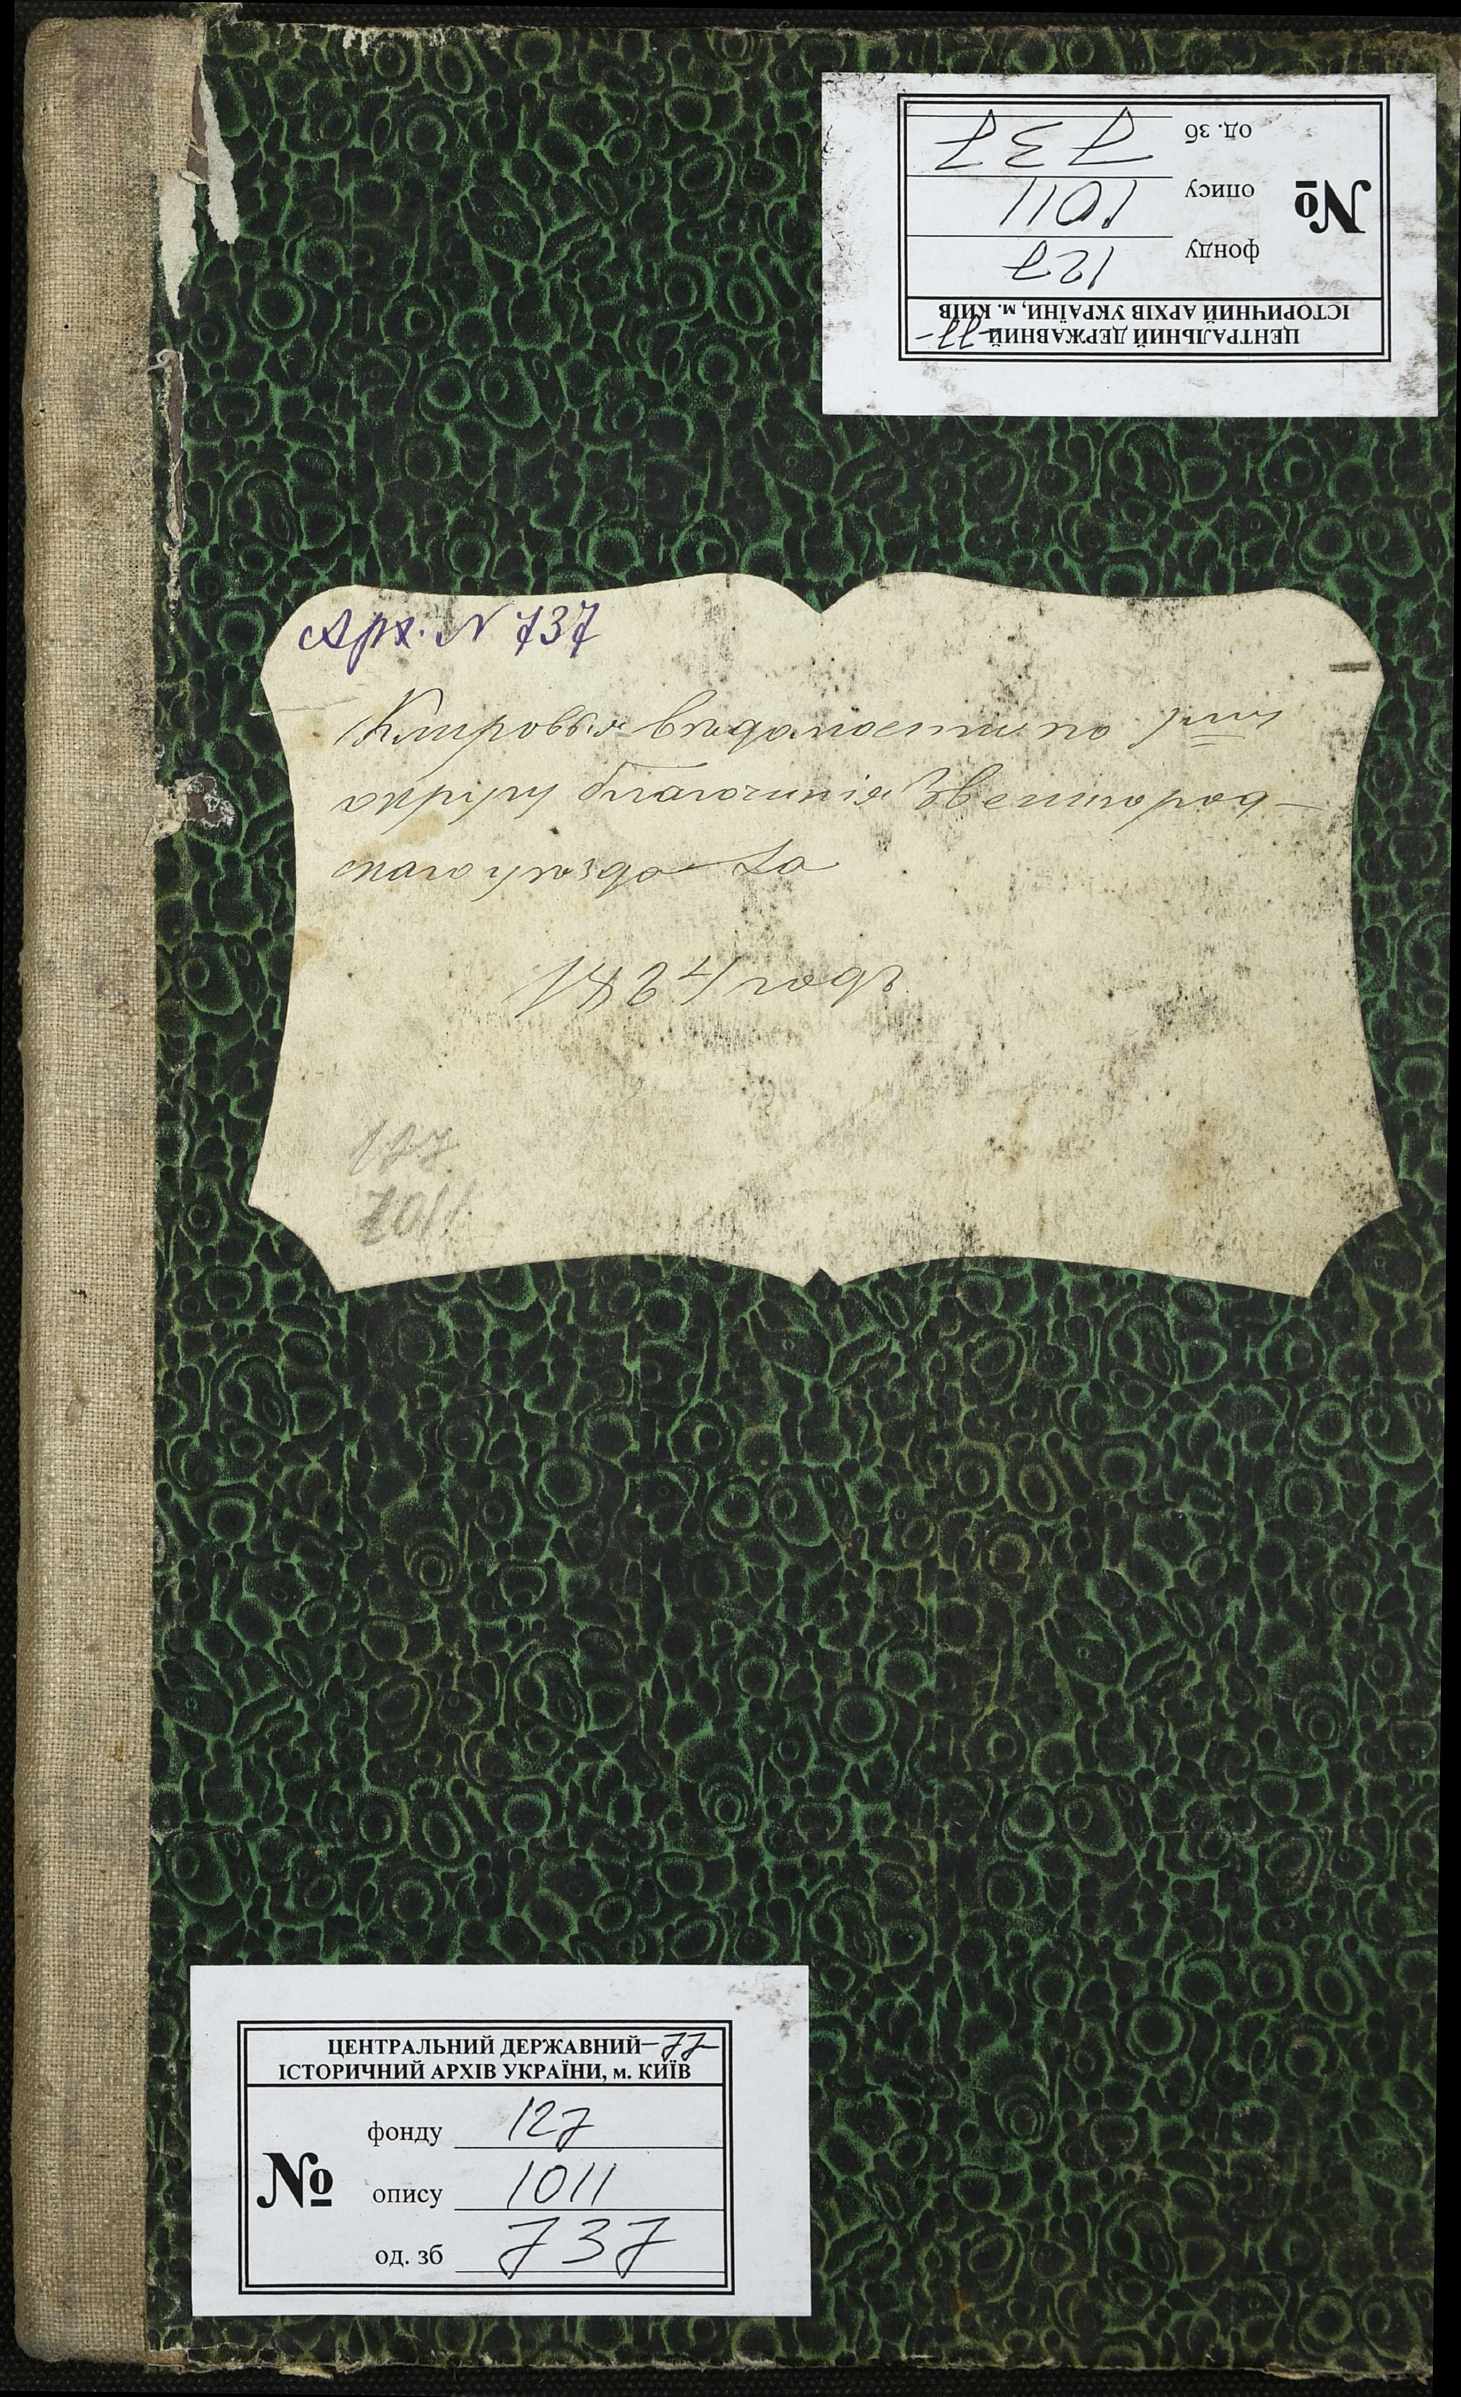 ЦЕНТРАЛЬНИЙ ДЕРЖАВНИЙ -77-
ІСТОРИЧНИЙ АРХІВ УКРАЇНИ, м. КИЇВ
№
фонду 127
опису 1011
од. зб 737
Арх. N 737
Клировыя вѣдомости по 1му
округу благочинія Звенигород-
скаго уѣзда за
1824 годъ
127
1011
ЦЕНТРАЛЬНИЙ ДЕРЖАВНИЙ -77-
ІСТОРИЧНИЙ АРХІВ УКРАЇНИ, м. КИЇВ
№
фонду 127
опису 1011
од. зб 737